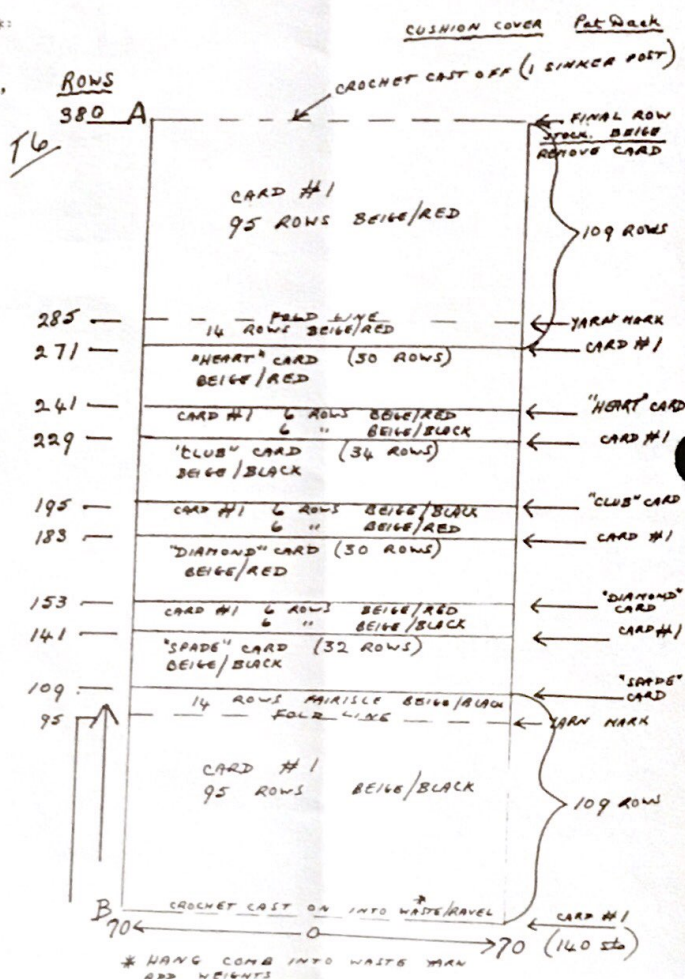 CUSHION COVER Pat Dack
CROCHET CAST OFF (1 SINKER POST)
ROWS
380 A
T6
FINAL ROW
STOCK. BEIGE
REMOVE CARD
CARD #1
95 ROWS BEIGE/RED
109 ROWS
285 FOLD LINE YARN MARK
14 ROWS BEIGE/RED
271 CARD #1
"HEART" CARD (30 ROWS)
BEIGE/RED
241 "HEART" CARD
CARD #1 6 ROWS BEIGE/RED
6 " BEIGE/BLACK
229 CARD #1
"CLUB" CARD (34 ROWS)
BEIGE/BLACK
195 "CLUB" CARD
CARD #1 6 ROWS BEIGE/BLACK
6 " BEIGE/RED
183 CARD #1
"DIAMOND" CARD (30 ROWS)
BEIGE/RED
153 "DIAMOND" CARD
CARD #1 6 ROWS BEIGE/RED
6 " BEIGE/BLACK
141 CARD #1
"SPADE" CARD (32 ROWS)
BEIGE/BLACK
109 "SPADE" CARD
14 ROWS FAIRISLE BEIGE/BLACK
95 FOLD LINE YARN MARK
CARD #1
95 ROWS BEIGE/BLACK
109 ROWS
B CROCHET CAST ON INTO WASTE/RAVEL *
CARD #1
70 0 70 (140 sts)
* HANG COMB INTO WASTE YARN
ADD WEIGHTS